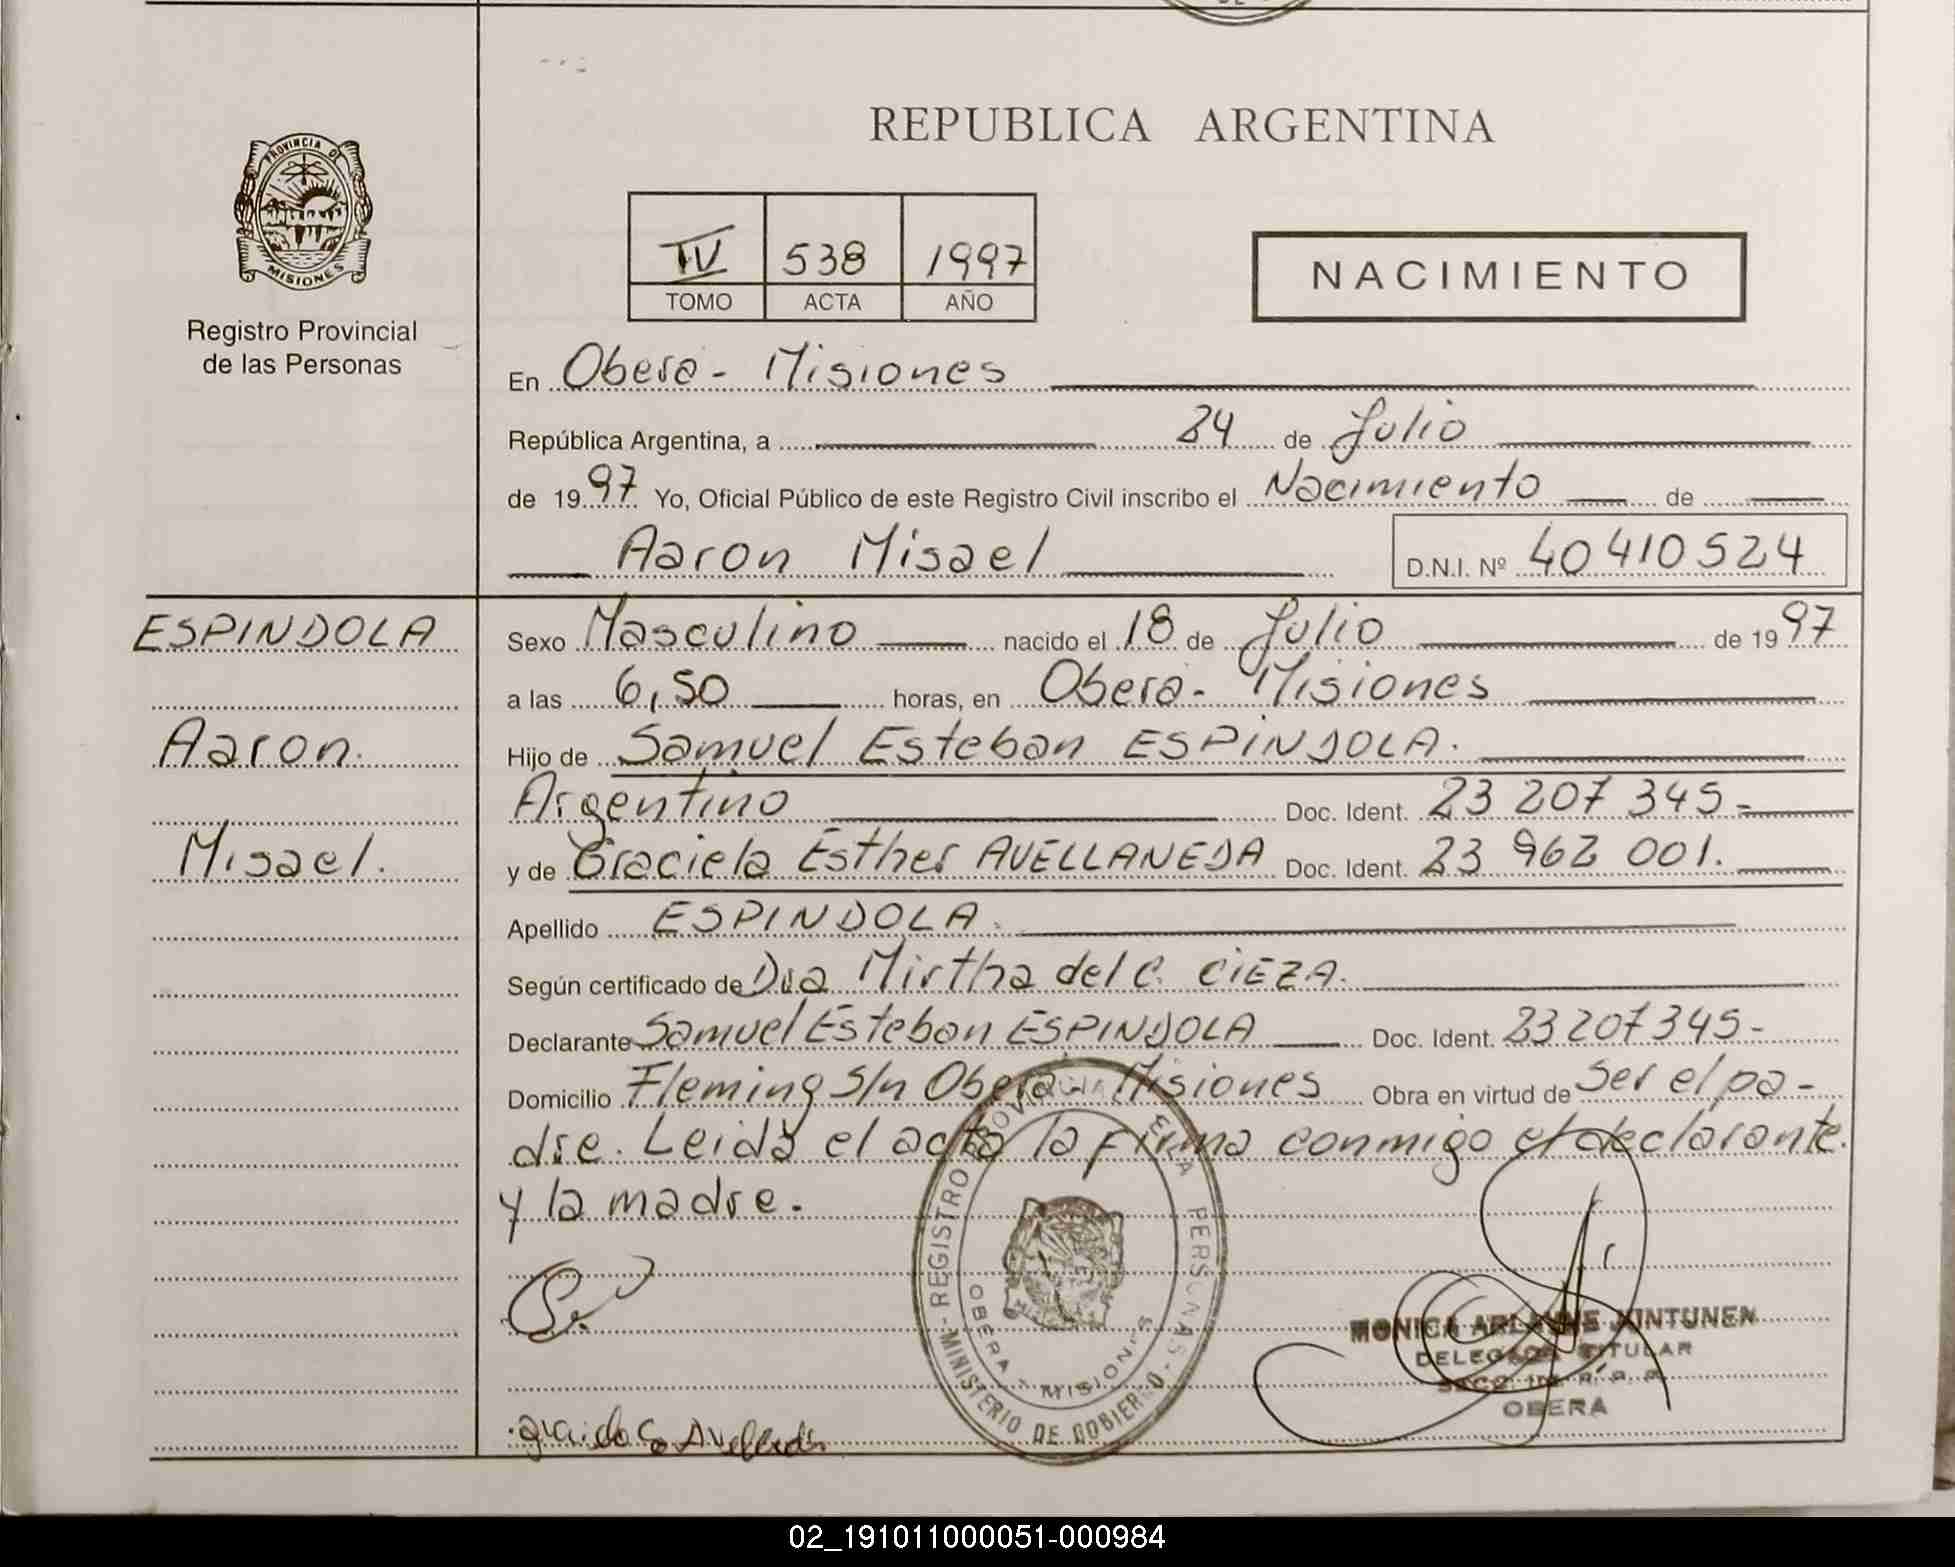 REPUBLICA ARGENTINA
PROVINCIA DE
MISIONES
Registro Provincial
de las Personas
IV 538 1997
TOMO ACTA AÑO
NACIMIENTO
En Oberá - Misiones
República Argentina, a 24 de Julio
de 1997 Yo, Oficial Público de este Registro Civil inscribo el Nacimiento de
Aaron Misael D.N.I. Nº 40410524
ESPINDOLA
Aaron.
Misael.
Sexo Masculino nacido el 18 de Julio de 1997
a las 6,50 horas, en Oberá - Misiones
Hijo de Samuel Esteban ESPINDOLA.
Argentino Doc. Ident. 23 207 345 -
y de Graciela Esther AVELLANEDA Doc. Ident. 23 962 001.
Apellido ESPINDOLA.
Según certificado de Dra Mirtha del C. CIEZA.
Declarante Samuel Esteban ESPINDOLA Doc. Ident. 23 207 345 -
Domicilio Fleming S/n Oberá - Misiones Obra en virtud de Ser el pa-
dre. Leida el acta la firma conmigo el declarante.
y la madre.
REGISTRO PROVINCIAL PERSONAS - MINISTERIO DE GOBIERNO
OBERA - MISIONES
MONICA JUNTUNEN
DELEGADA TITULAR
OBERA
02_191011000051-000984